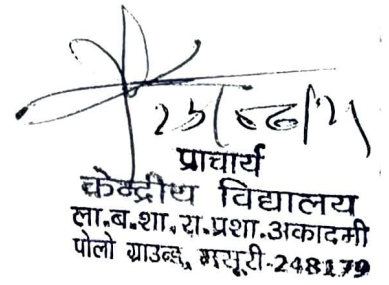 प्राचार्य
केन्द्रीय विद्यालय
ला.ब.शा.रा.प्रशा.अकादमी
पोलो ग्राउन्ड, मसूरी-248179